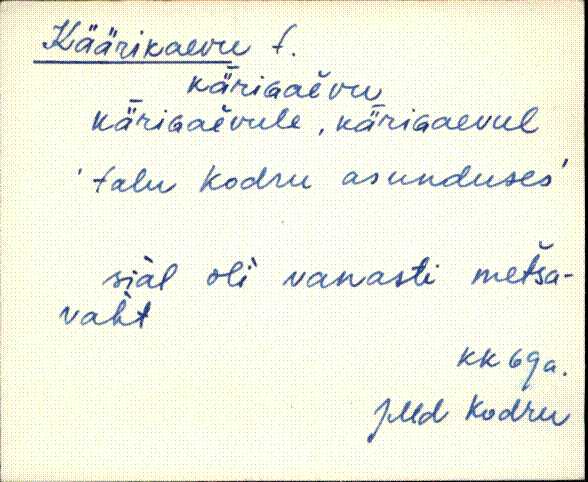 Käärikaevu t.
kǟriɢaĕvu
kǟriɢaĕvule, kǟriɢaevul
'talu Kodru asunduses'
siàl olì vanasti metša-
vaht
KK 69a.
JMd Kodru